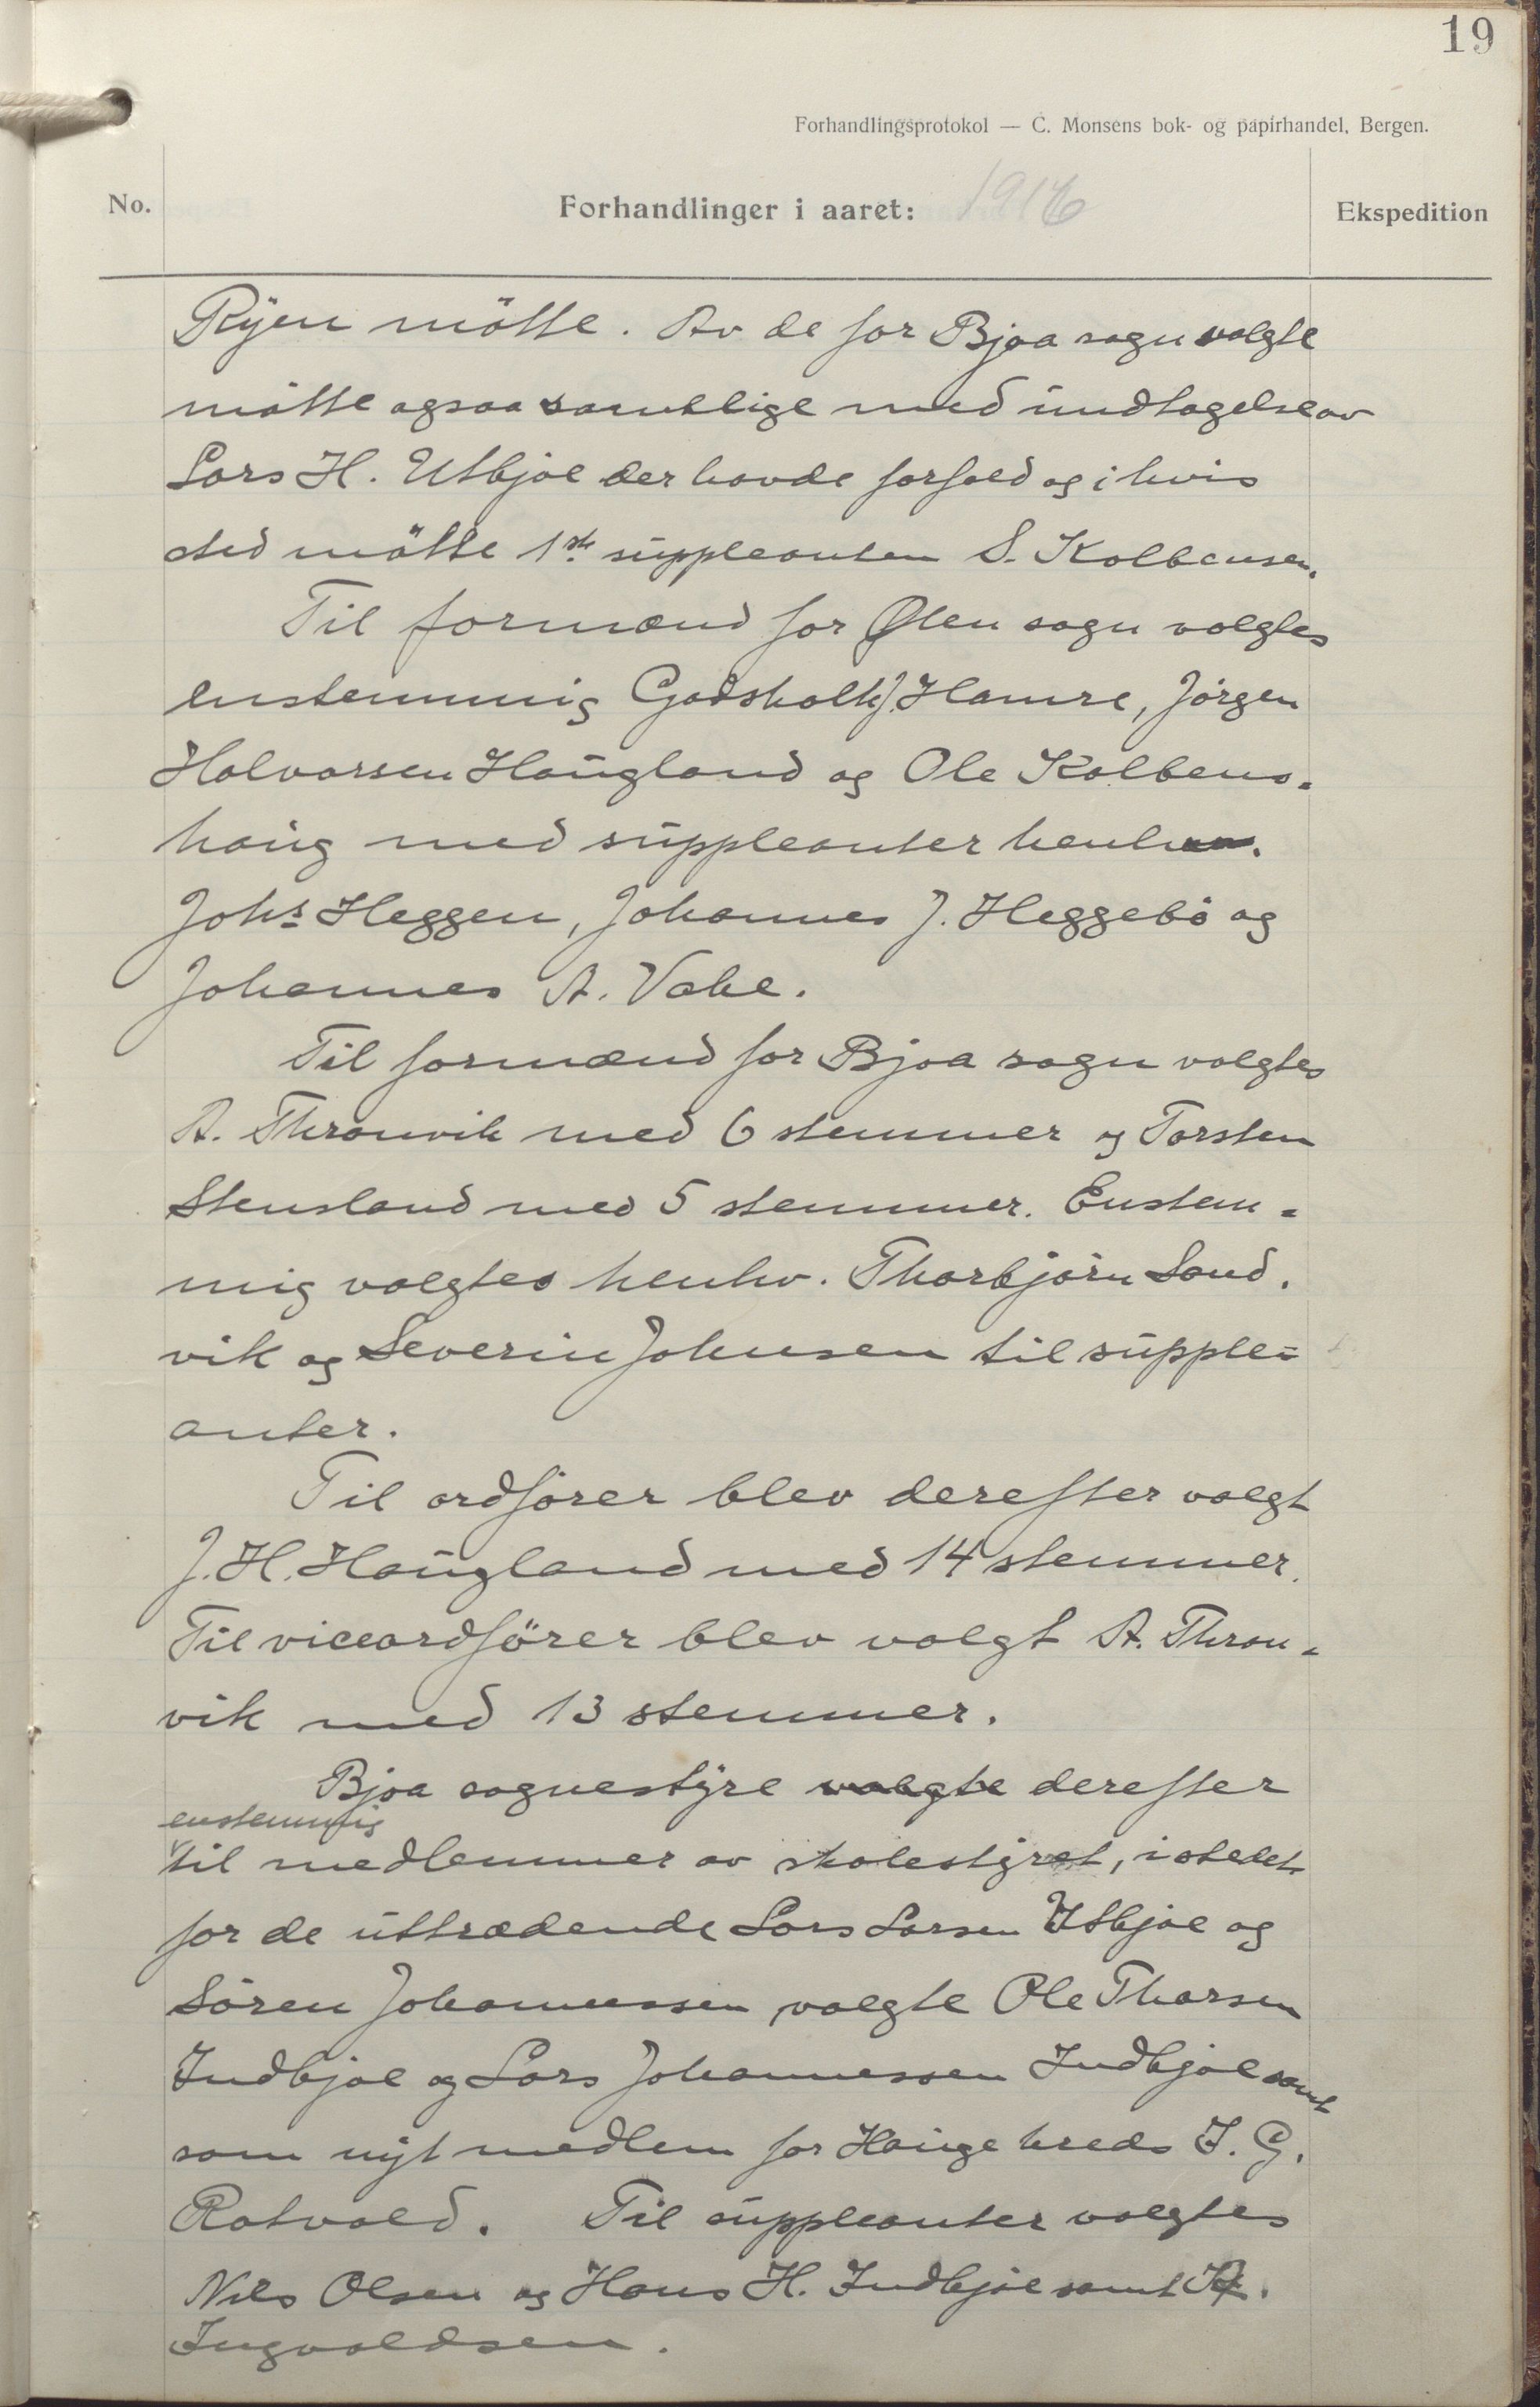 19
Forhandlingsprotokol — C. Monsens bok- og papirhandel, Bergen.
No.
Forhandlinger i aaret: 1916
Ekspedition
Ryen mötte. Av de for Bjoa sogn valgte
mötte ogsaa samtlige med undtagelse av
Lars H. Utbjoe der havde forfald og i hvis
sted mötte 1ste suppleanten S. Kolbensen.
Til formænd for Ølen sogn valgtes
enstemmig Godskalk J. Hamre, Jörgen
Halvorsen Haugland og Ole Kolbens-
haug med suppleanter henhv.
Johs Heggen, Johannes J. Heggebö og
Johannes A. Vake.
Til formænd for Bjoa sogn valgtes
A. Thronvik med 6 stemmer og Torsten
Stensland med 5 stemmer. Enstem-
mig valgtes henhv. Thorbjörn Sand-
vik og Severin Johnsen til supple-
anter.
Til ordförer blev derefter valgt
J. H. Haugland med 14 stemmer.
Til viceordförer blev valgt A. Thron-
vik med 13 stemmer.
Bjoa sognestyre valgte derefter
enstemmig
til medlemmer av skolestyret, istedet
for de uttrædende Lars Larsen Utbjoe og
Sören Johannessen valgte Ole Thorsen
Indbjoe og Lars Johannessen Indbjoe samt
som nyt medlem for Hauge kreds J. G.
Rotvold. Til suppleanter valgtes
Nils Olsen og Hans H. Indbjoe samt
Ingvaldsen.